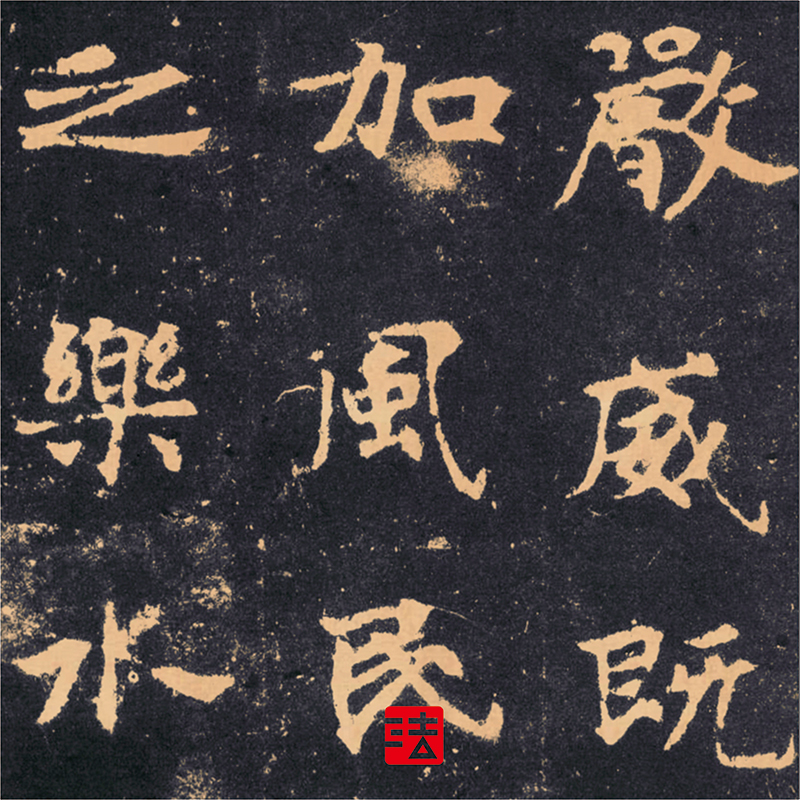 嚴威既
加風民
之樂水
法